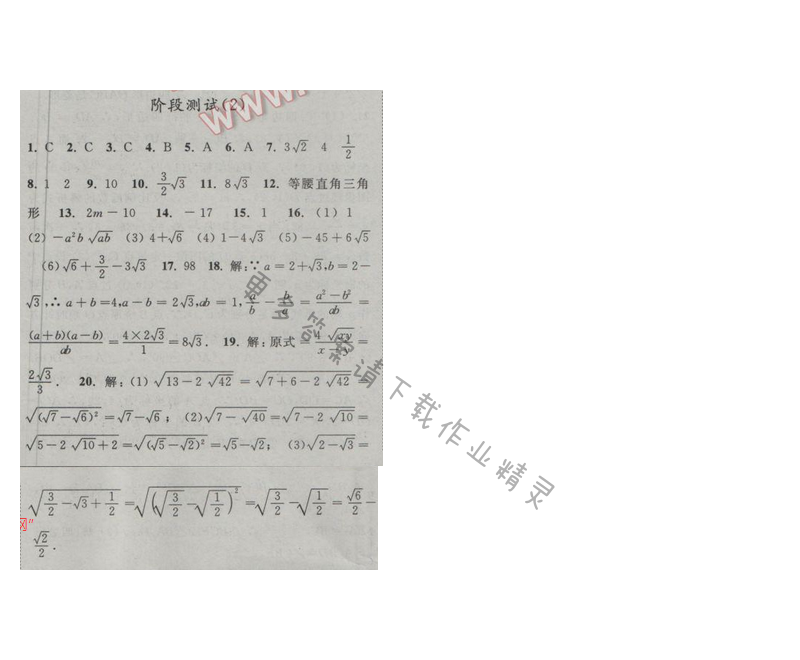 阶段测试(2)
1. C 2. C 3. C 4. B 5. A 6. A 7. 3√2 4 1/2
8. 1 2 9. 10 10. 3/2√3 11. 8√3 12. 等腰直角三角
形 13. 2m-10 14. -17 15. 1 16. (1) 1
(2) -a²b√ab (3) 4+√6 (4) 1-4√3 (5) -45+6√5
(6) √6+3/2-3√3 17. 98 18. 解:∵a=2+√3,b=2-
√3,∴a+b=4,a-b=2√3,ab=1,a/b-b/a=(a²-b²)/ab=
(a+b)(a-b)/ab=4×2√3/1=8√3. 19. 解:原式=4√xy/(x-y)=
2√3/3. 20. 解:(1)√(13-2√42)=√(7+6-2√42)=
√((√7-√6)²)=√7-√6; (2)√(7-√40)=√(7-2√10)=
√(5-2√10+2)=√((√5-√2)²)=√5-√2; (3)√(2-√3)=
√(3/2-√3+1/2)=√((√(3/2)-√(1/2))²)=√(3/2)-√(1/2)=√6/2-
√2/2.
www.
网"
更多答案请下载作业精灵